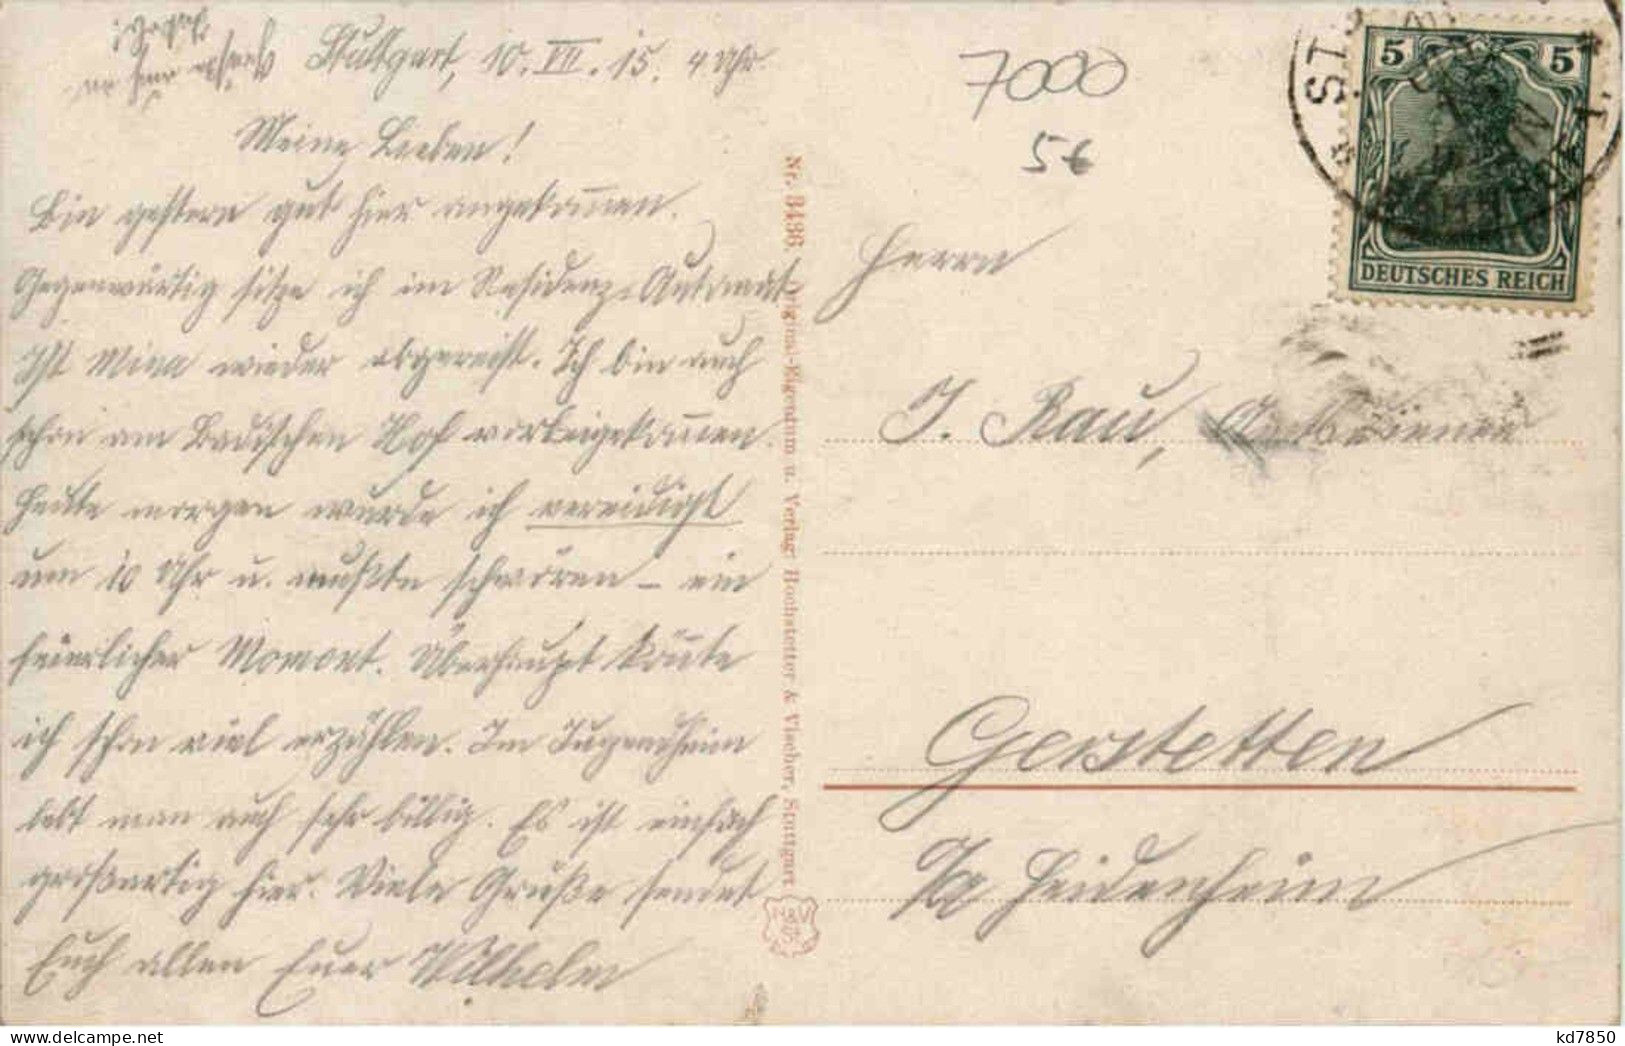 Stuttgart, 10. VII. 15. 4 Uhr.
Meine Lieben!
Bin gestern gut hier angekom̅en.
Gegenwärtig sitze ich im Residenz-Automat
Ist Mina wieder abgereist. Ich bin auch
schon am Badischen Hof vorbeigekom̅en.
Heute morgen wurde ich vereidigt
um 10 Uhr u. mußte schwören – ein
feierlicher Moment. Überhaupt kön̅te
ich schon viel erzählen. Im Jugendheim
lebt man auch sehr billig. Es ist einfach
großartig hier. Viele Grüße sendet
Euch allen Euer Wilhelm
Nr. 3436. Original-Eigentum u. Verlag Hochstetter & Vischer, Stuttgart
7000
5€
5 5
DEUTSCHES REICH
Herrn
J. Rau, Amtsdiener
Gerstetten
O/A Heidenheim
kd7850